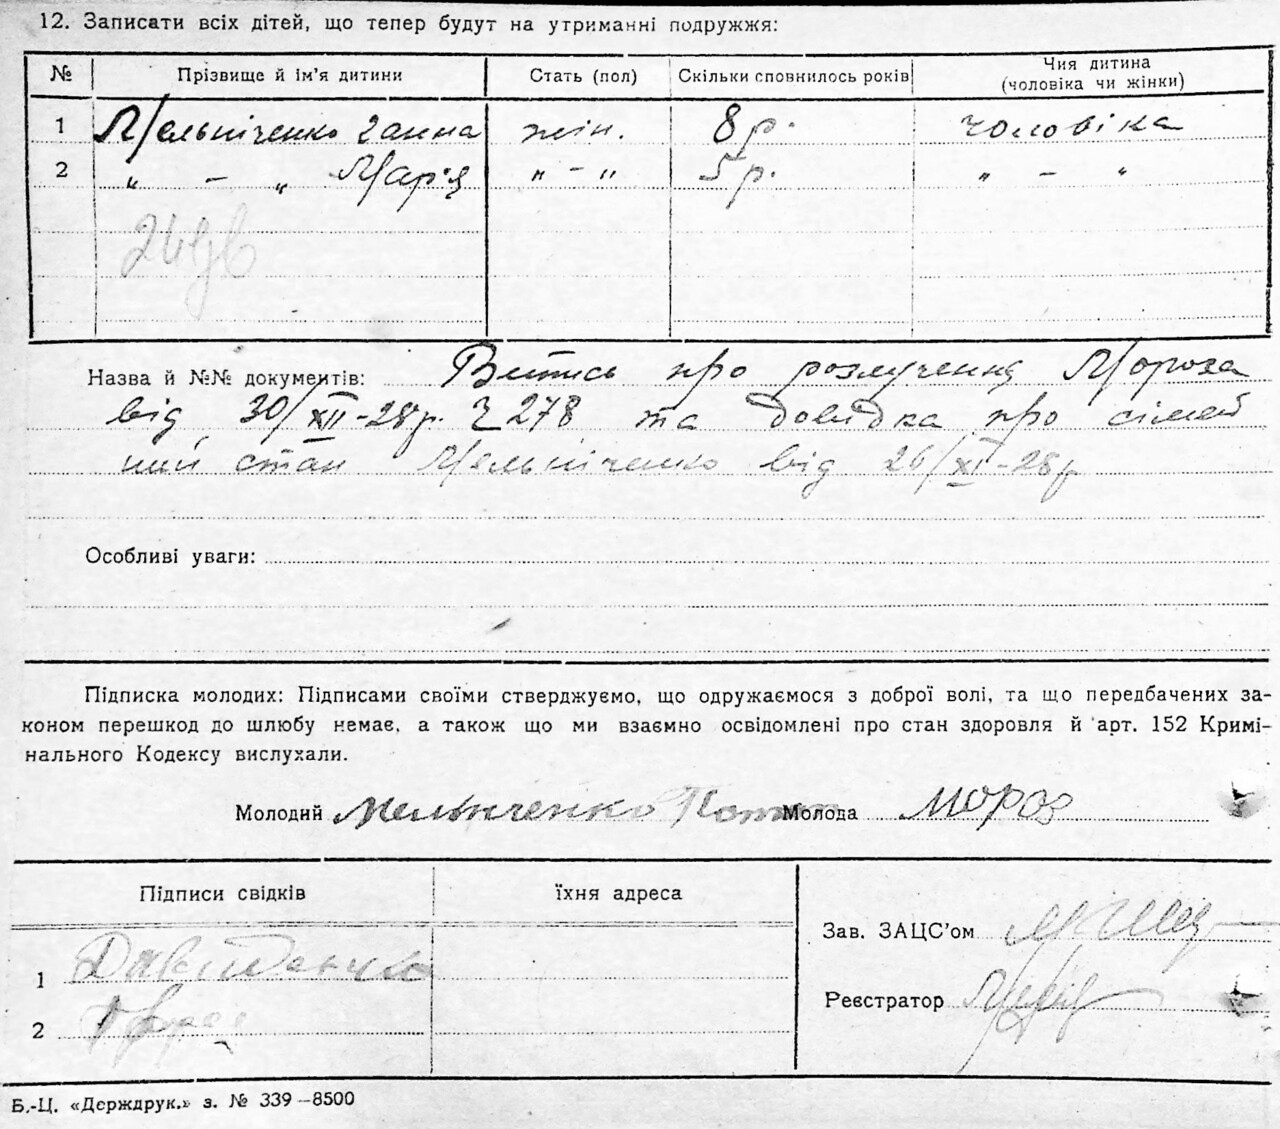 12. Записати всіх дітей, що тепер будут на утриманні подружжя:
№ Прізвище й ім'я дитини Стать (пол) Скільки сповнилось років Чия дитина (чоловіка чи жінки)
1 Мельніченко Ганна жін. 8 р. чоловіка
2 " – " Марія " – " 5 р. " – "
Назва й №№ документів: Витись про розлучення Мороза
від 30/XII-28р. Ч 278 та довідка про сімей
ний стан Мельніченко від 26/XI-28р
Особливі уваги:
Підписка молодих: Підписами своїми стверджуємо, що одружаємося з доброї волі, та що передбачених за-
коном перешкод до шлюбу немає, а також що ми взаємно освідомлені про стан здоровля й арт. 152 Кримі-
нального Кодексу вислухали.
Молодий Мельнченко Молода Мороз
Підписи свідків їхня адреса
Зав. ЗАЦС'ом
1
Реєстратор
2
Б.-Ц. «Держдрук.» з. № 339–8500